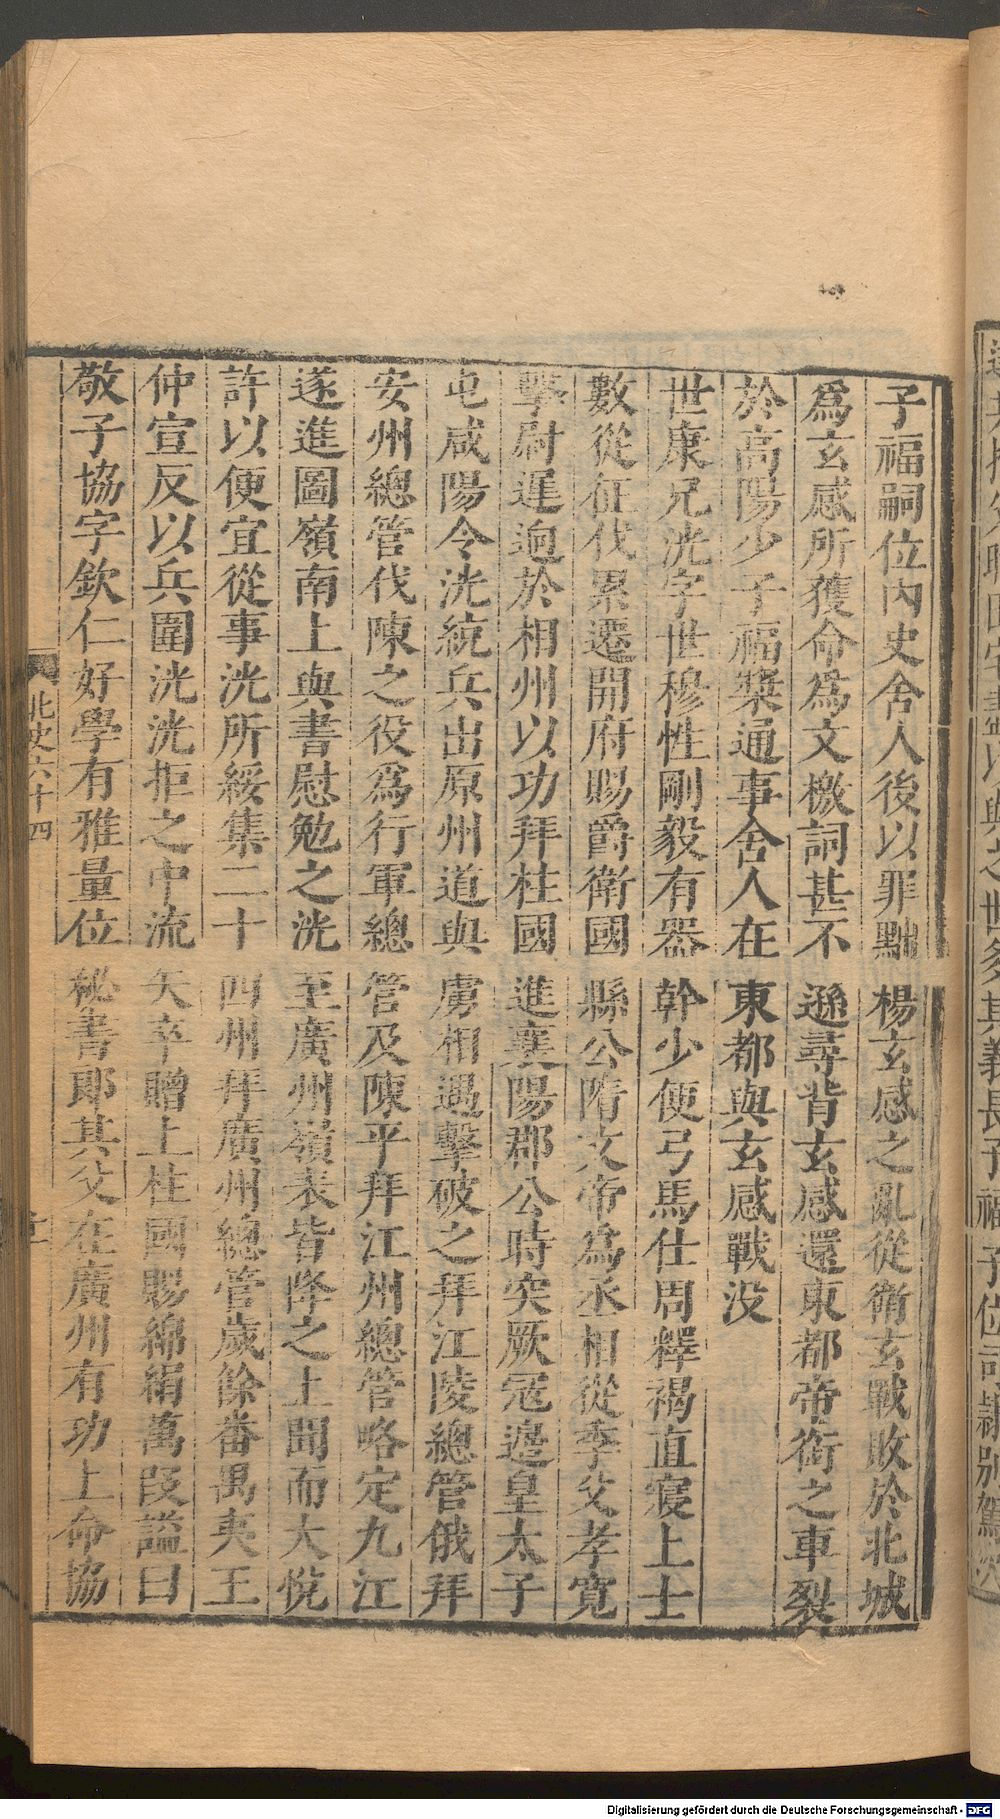 子福嗣位內史舍人後以罪黜楊玄感之亂從衛玄戰敗於北城
爲玄感所獲命爲文檄詞甚不遜尋背玄感還東都帝銜之車裂
於高陽少子福奬通事舍人在東都與玄感戰没
世康兄洸字世穆性剛毅有器幹少便弓馬仕周釋褐直寢上士
數從征伐累遷開府賜爵衛國縣公隋文帝爲丞相從季父孝寬
擊尉遲迥於相州以功拜柱國進襄陽郡公時突厥寇邊皇太子
屯咸陽令洸統兵出原州道與虜相遇擊破之拜江陵總管俄拜
安州總管伐陳之役爲行軍總管及陳平拜江州總管略定九江
遂進圖嶺南上與書慰勉之洸至廣州嶺表皆降之上聞而大悅
許以便宜從事洸所綏集二十四州拜廣州總管歲餘番禺夷王
仲宣反以兵圍洸洸拒之中流矢卒贈上柱國賜綿絹萬段謚曰
敬子協字欽仁好學有雅量位秘書郎其父在廣州有功上命協
北史六十四
Digitalisierung gefördert durch die Deutsche Forschungsgemeinschaft - DFG